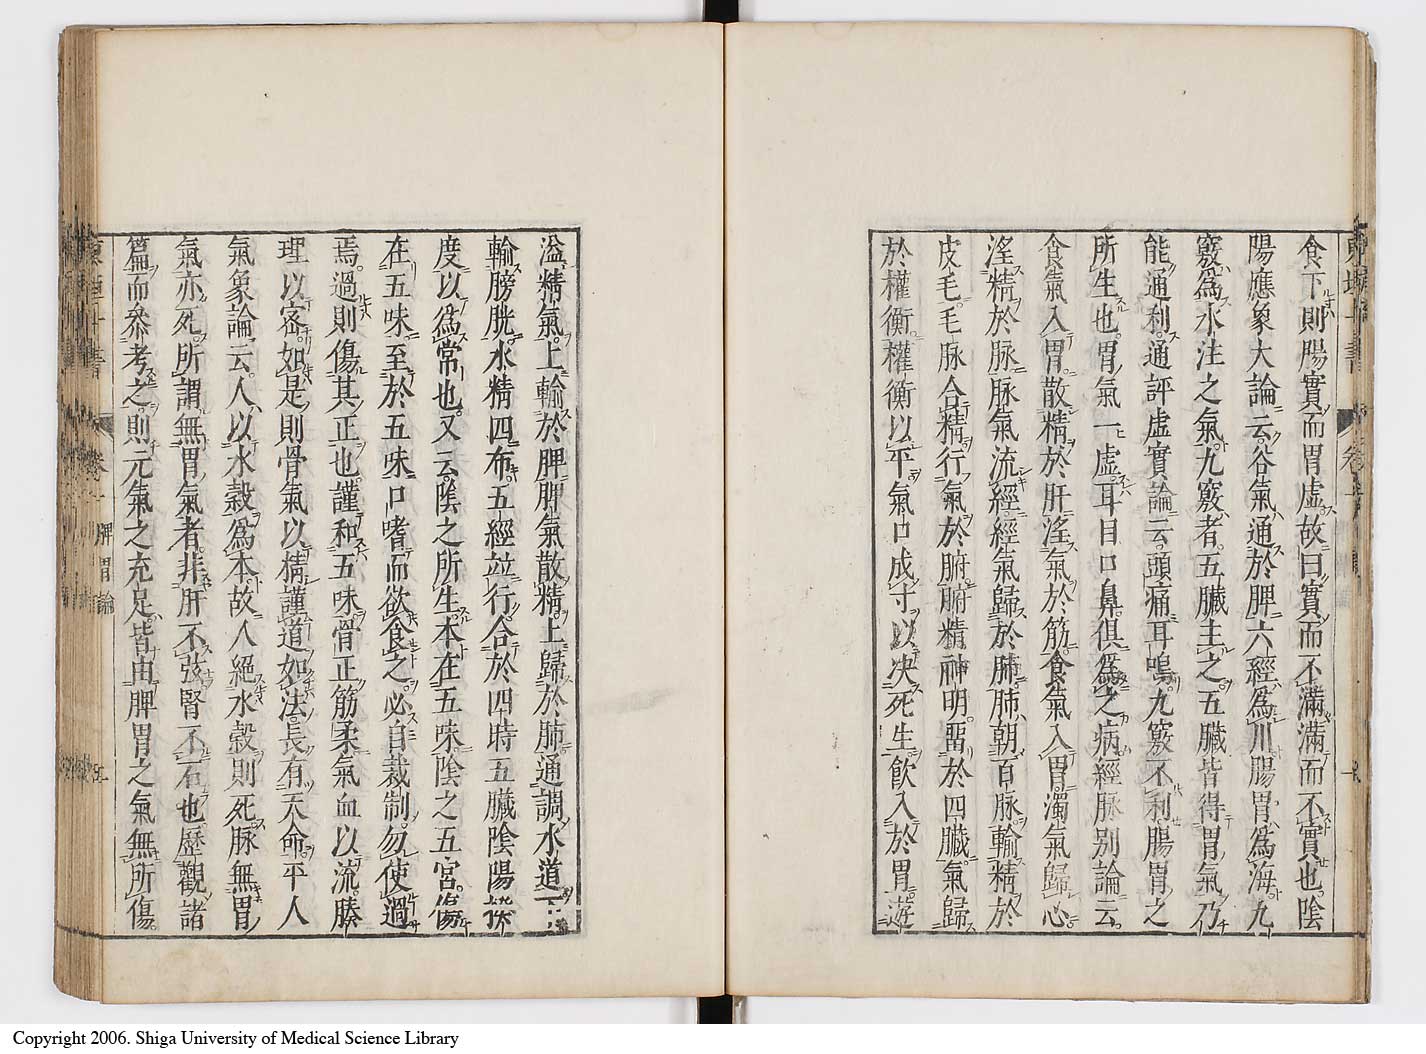 食下則腸實而胃虛故曰實而不滿滿而不實也陰
陽應象大論云谷氣通於脾六經爲川腸胃爲海九
竅爲水注之氣九竅者五臟主之五臟皆得胃氣乃
能通利通評虛實論云頭痛耳鳴九竅不利腸胃之
所生也胃氣一虛耳目口鼻俱爲之病經脉别論云
食氣入胃散精於肝淫氣於筋食氣入胃濁氣歸心
淫精於脉脉氣流經經氣歸於肺肺朝百脉輸精於
皮毛毛脉合精行氣於腑腑精神明畱於四臟氣歸
於權衡權衡以平氣口成寸以决死生飲入於胃遊
溢精氣上輸於脾脾氣散精上歸於肺通調水道下
輸膀胱水精四布五經竝行合於四時五臟陰陽揆
度以爲常也又云陰之所生本在五味陰之五宮傷
在五味至於五味口嗜而欲食之必自裁制勿使過
焉過則傷其正也謹和五味骨正筋柔氣血以流腠
理以密如是則骨氣以精謹道如法長有天命平人
氣象論云人以水穀爲本故人絕水穀則死脉無胃
氣亦死所謂無胃氣者非肝不弦腎不石也歷觀諸
篇而參考之則元氣之充足皆由脾胃之氣無所傷
東垣十書 脾胃論
Copyright 2006. Shiga University of Medical Science Library